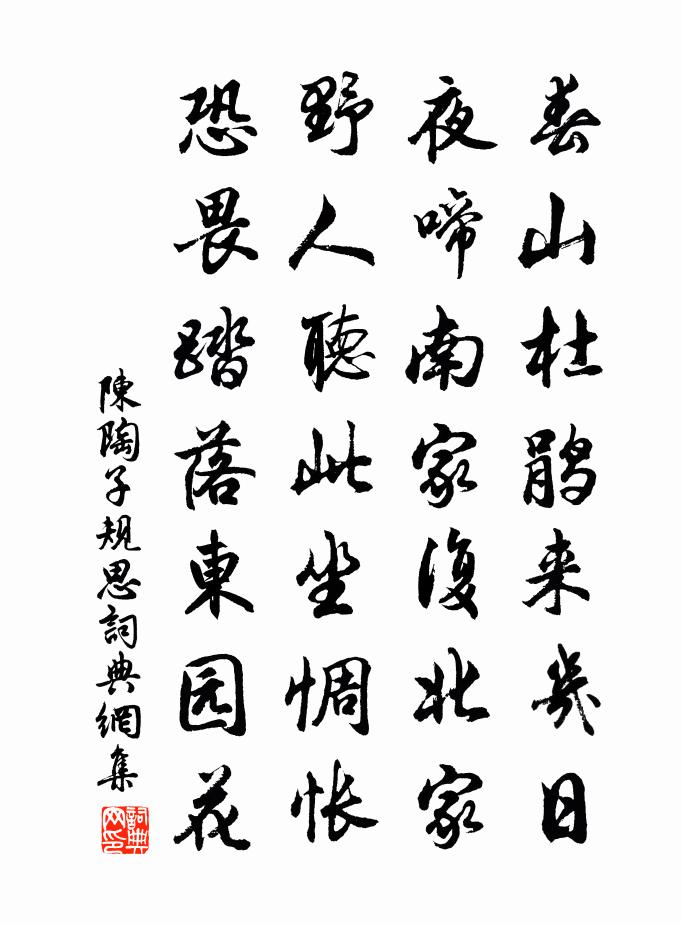 春山杜鹃来幾日
夜啼南家復北家
野人聽此坐惆怅
恐畏踏落東园花
陳陶子規思詞典網集
詞典
网印